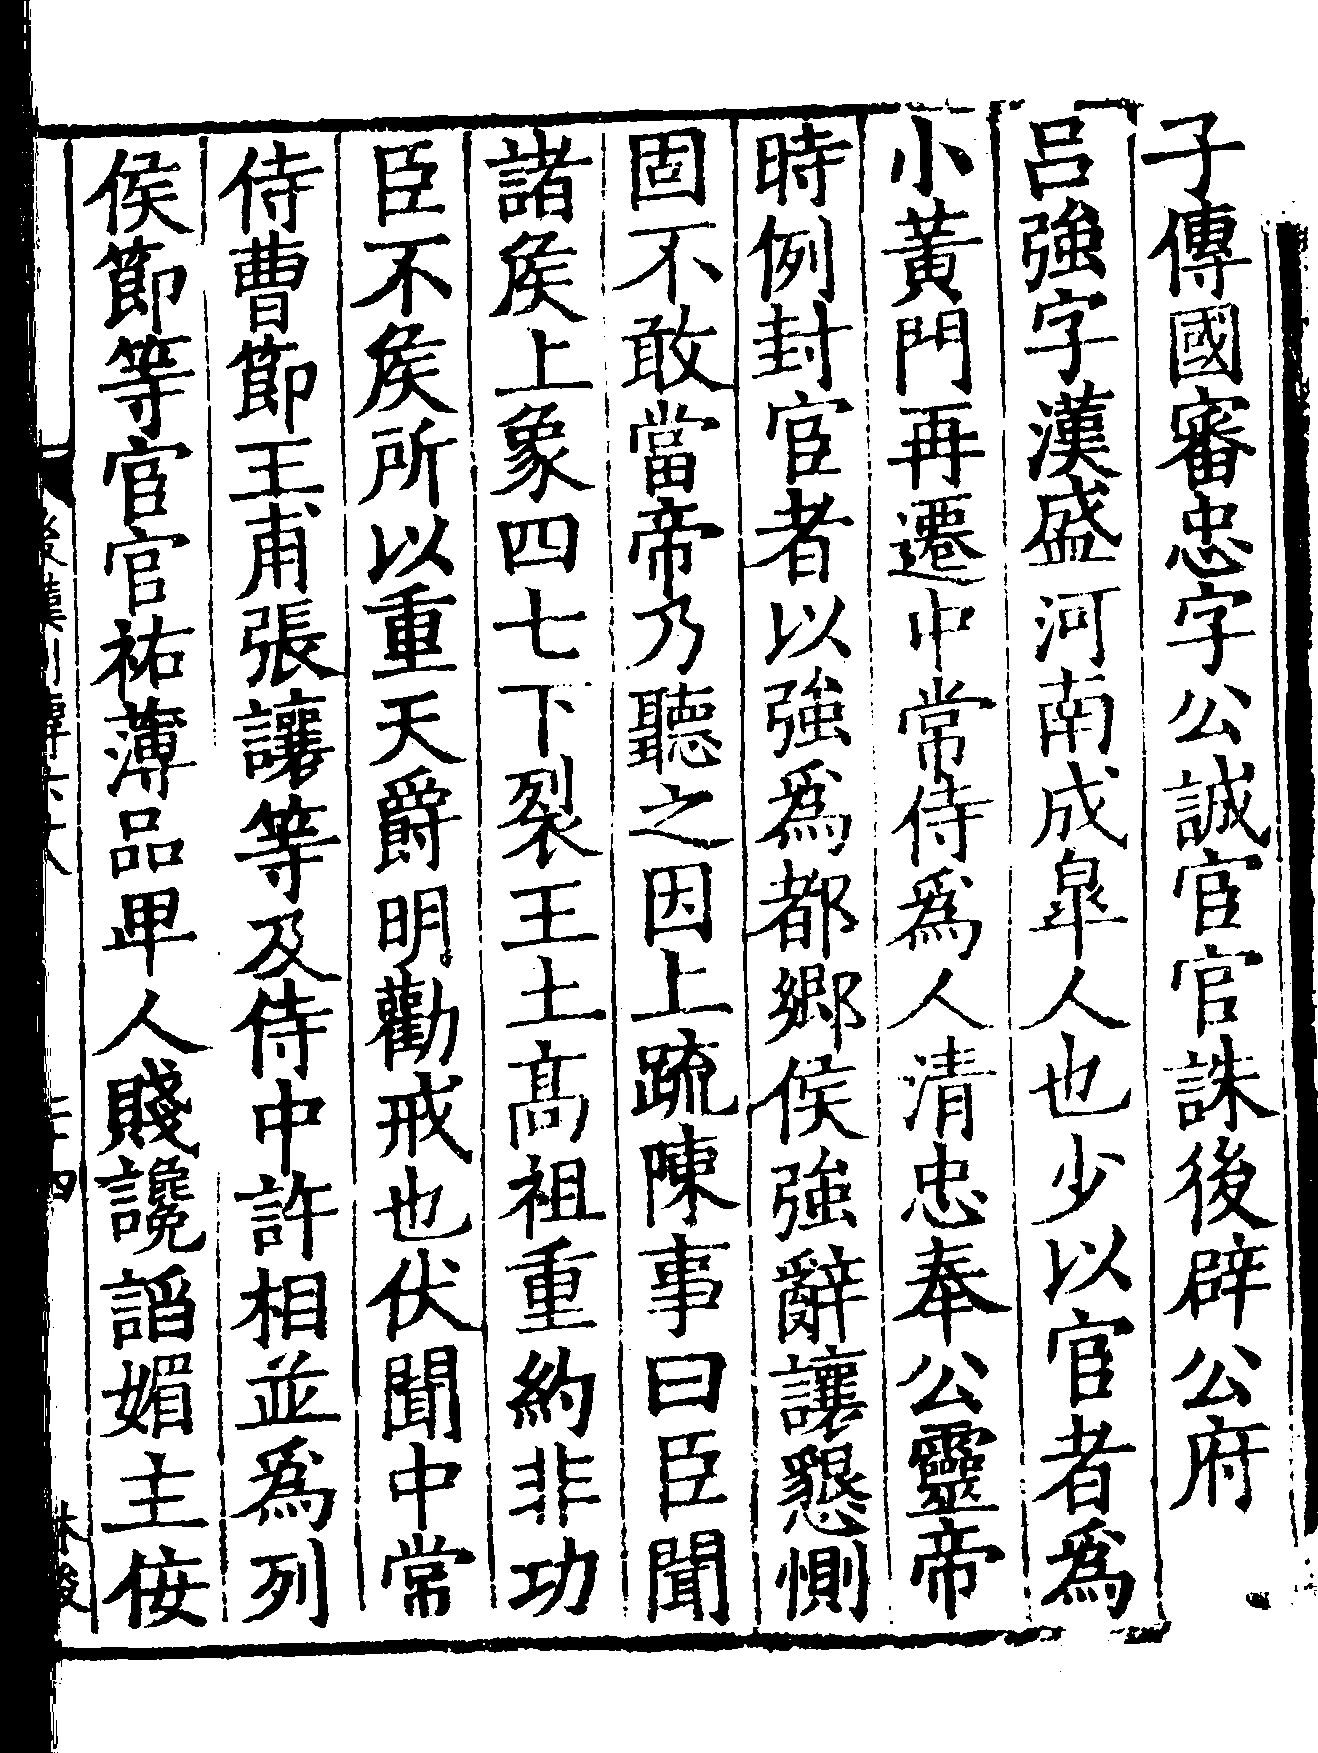 子傳國審忠字公誠宦官誅後辟公府
呂強字漢盛河南成皐人也少以宦者爲
小黃門再遷中常侍爲人清忠奉公靈帝
時例封宦者以強爲都鄉侯強辭讓懇惻
固不敢當帝乃聽之因上疏陳事曰臣聞
諸矦上象四七下裂王土高祖重約非功
臣不矦所以重天爵明勸戒也伏聞中常
侍曹節王甫張讓等及侍中許相並爲列
侯節等宦官祐薄品卑人賤讒謟媚主佞